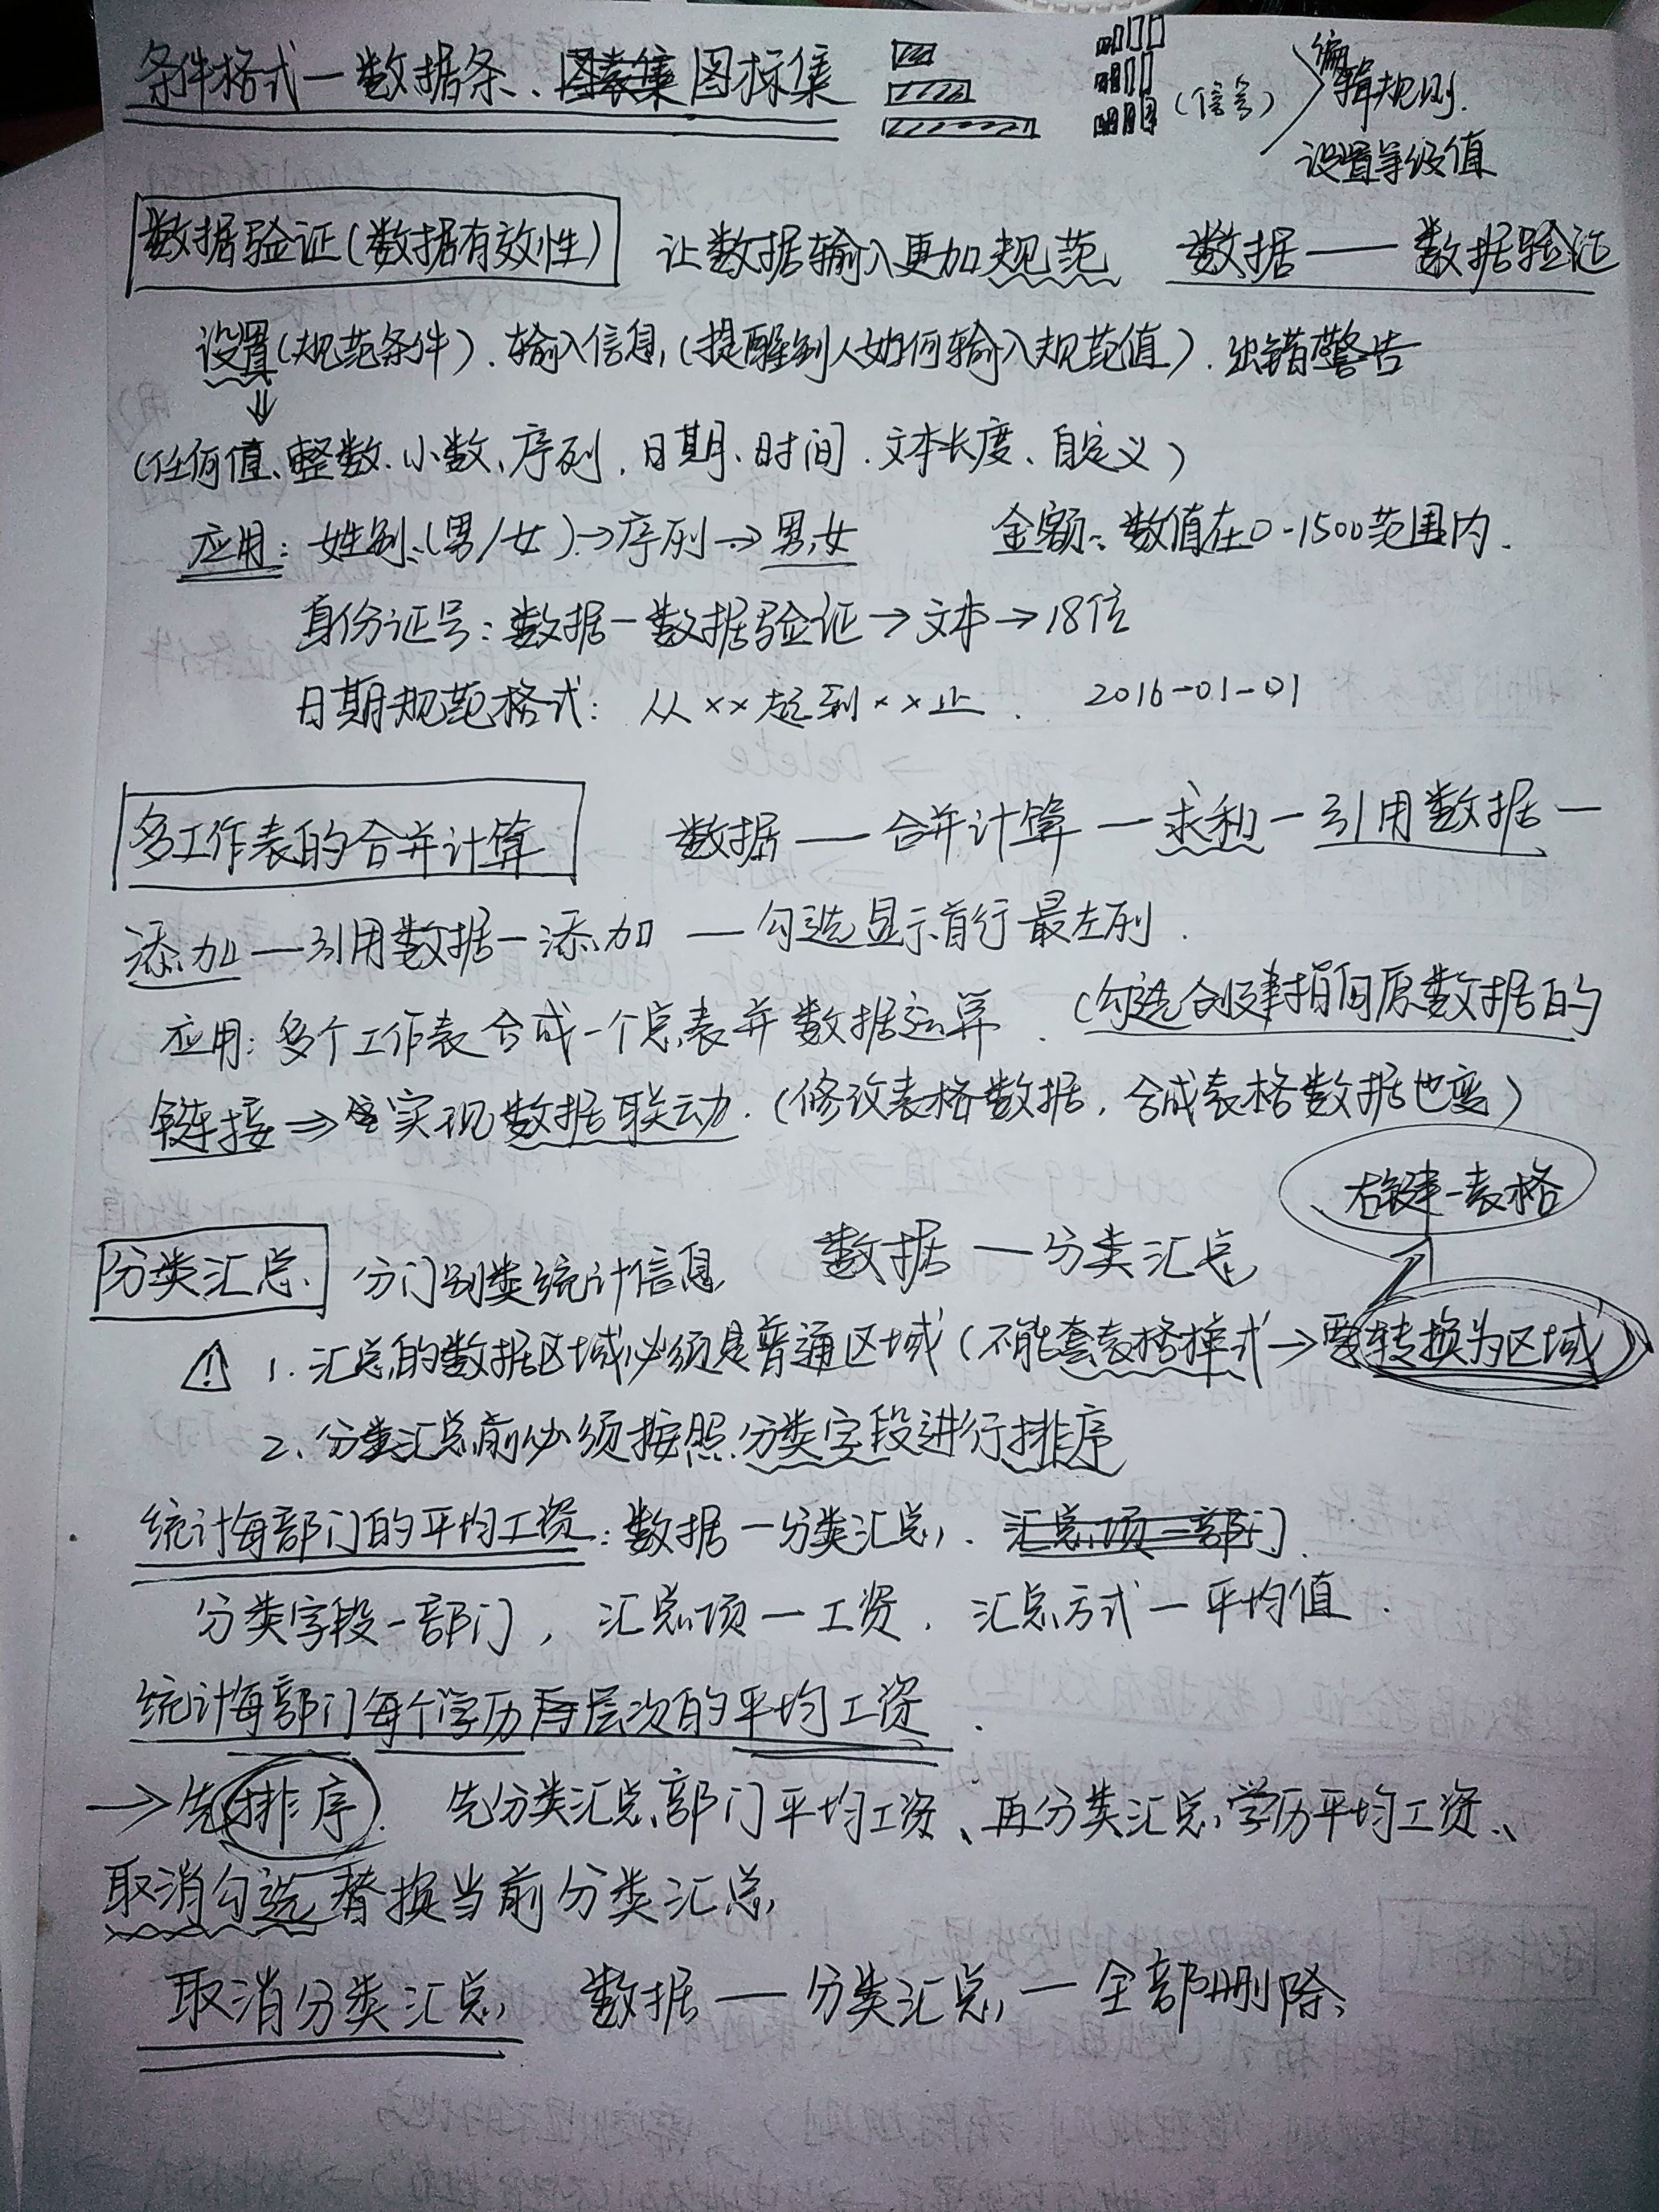 条件格式一数据条、图标集
(信号)
编辑规则.
设置等级值
数据验证(数据有效性) 让数据输入更加规范 数据——数据验证
设置(规范条件)、输入信息,(提醒别人如何输入规范值)、出错警告
(任何值、整数、小数、序列、日期、时间、文本长度、自定义)
应用: 姓别、(男/女)→序列→男,女 金额: 数值在0-1500范围内.
身份证号: 数据一数据验证→文本→18位
日期规范格式: 从××起到××止. 2016-01-01
多工作表的合并计算 数据——合并计算一求和一引用数据一
添加一引用数据一添加 —勾选显示首行最左列.
应用: 多个工作表合成一个总表并数据运算. (勾选创建指向原数据的
链接⇒实现数据联动.(修改表格数据,合成表格数据也变)
右键一表格
分类汇总 分门别类统计信息 数据—分类汇总
⚠ 1. 汇总的数据区域必须是普通区域(不能套表格样式→要转换为区域)
2. 分类汇总前必须按照分类字段进行排序
统计每部门的平均工资: 数据一分类汇总、 汇总项一部门.
分类字段一部门, 汇总项一工资. 汇总方式一平均值.
统计每部门每个学历层次的平均工资.
→先排序. 先分类汇总部门平均工资、再分类汇总学历平均工资、
取消勾选替换当前分类汇总
取消分类汇总 数据—分类汇总—全部删除